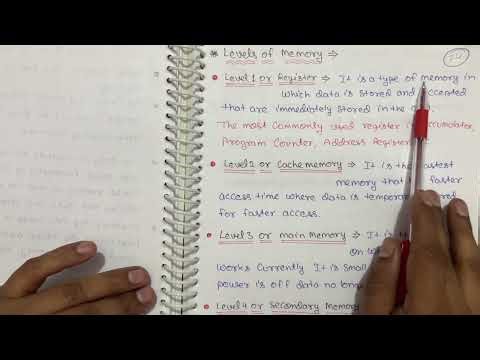 * Levels of Memory ⇒
74
• Level 1 or Register → It is a type of memory in
which data is stored and accepted
that are immediately stored in the
The most commonly used register
Program Counter, Address Register
• Level 2 or Cache memory ⇒ It is the fastest
memory that faster
access time where data is
for faster access.
• Level 3 or main Memory → It is
on
works Currently It is small
power is off data no
• Level 4 or Secondary Memory